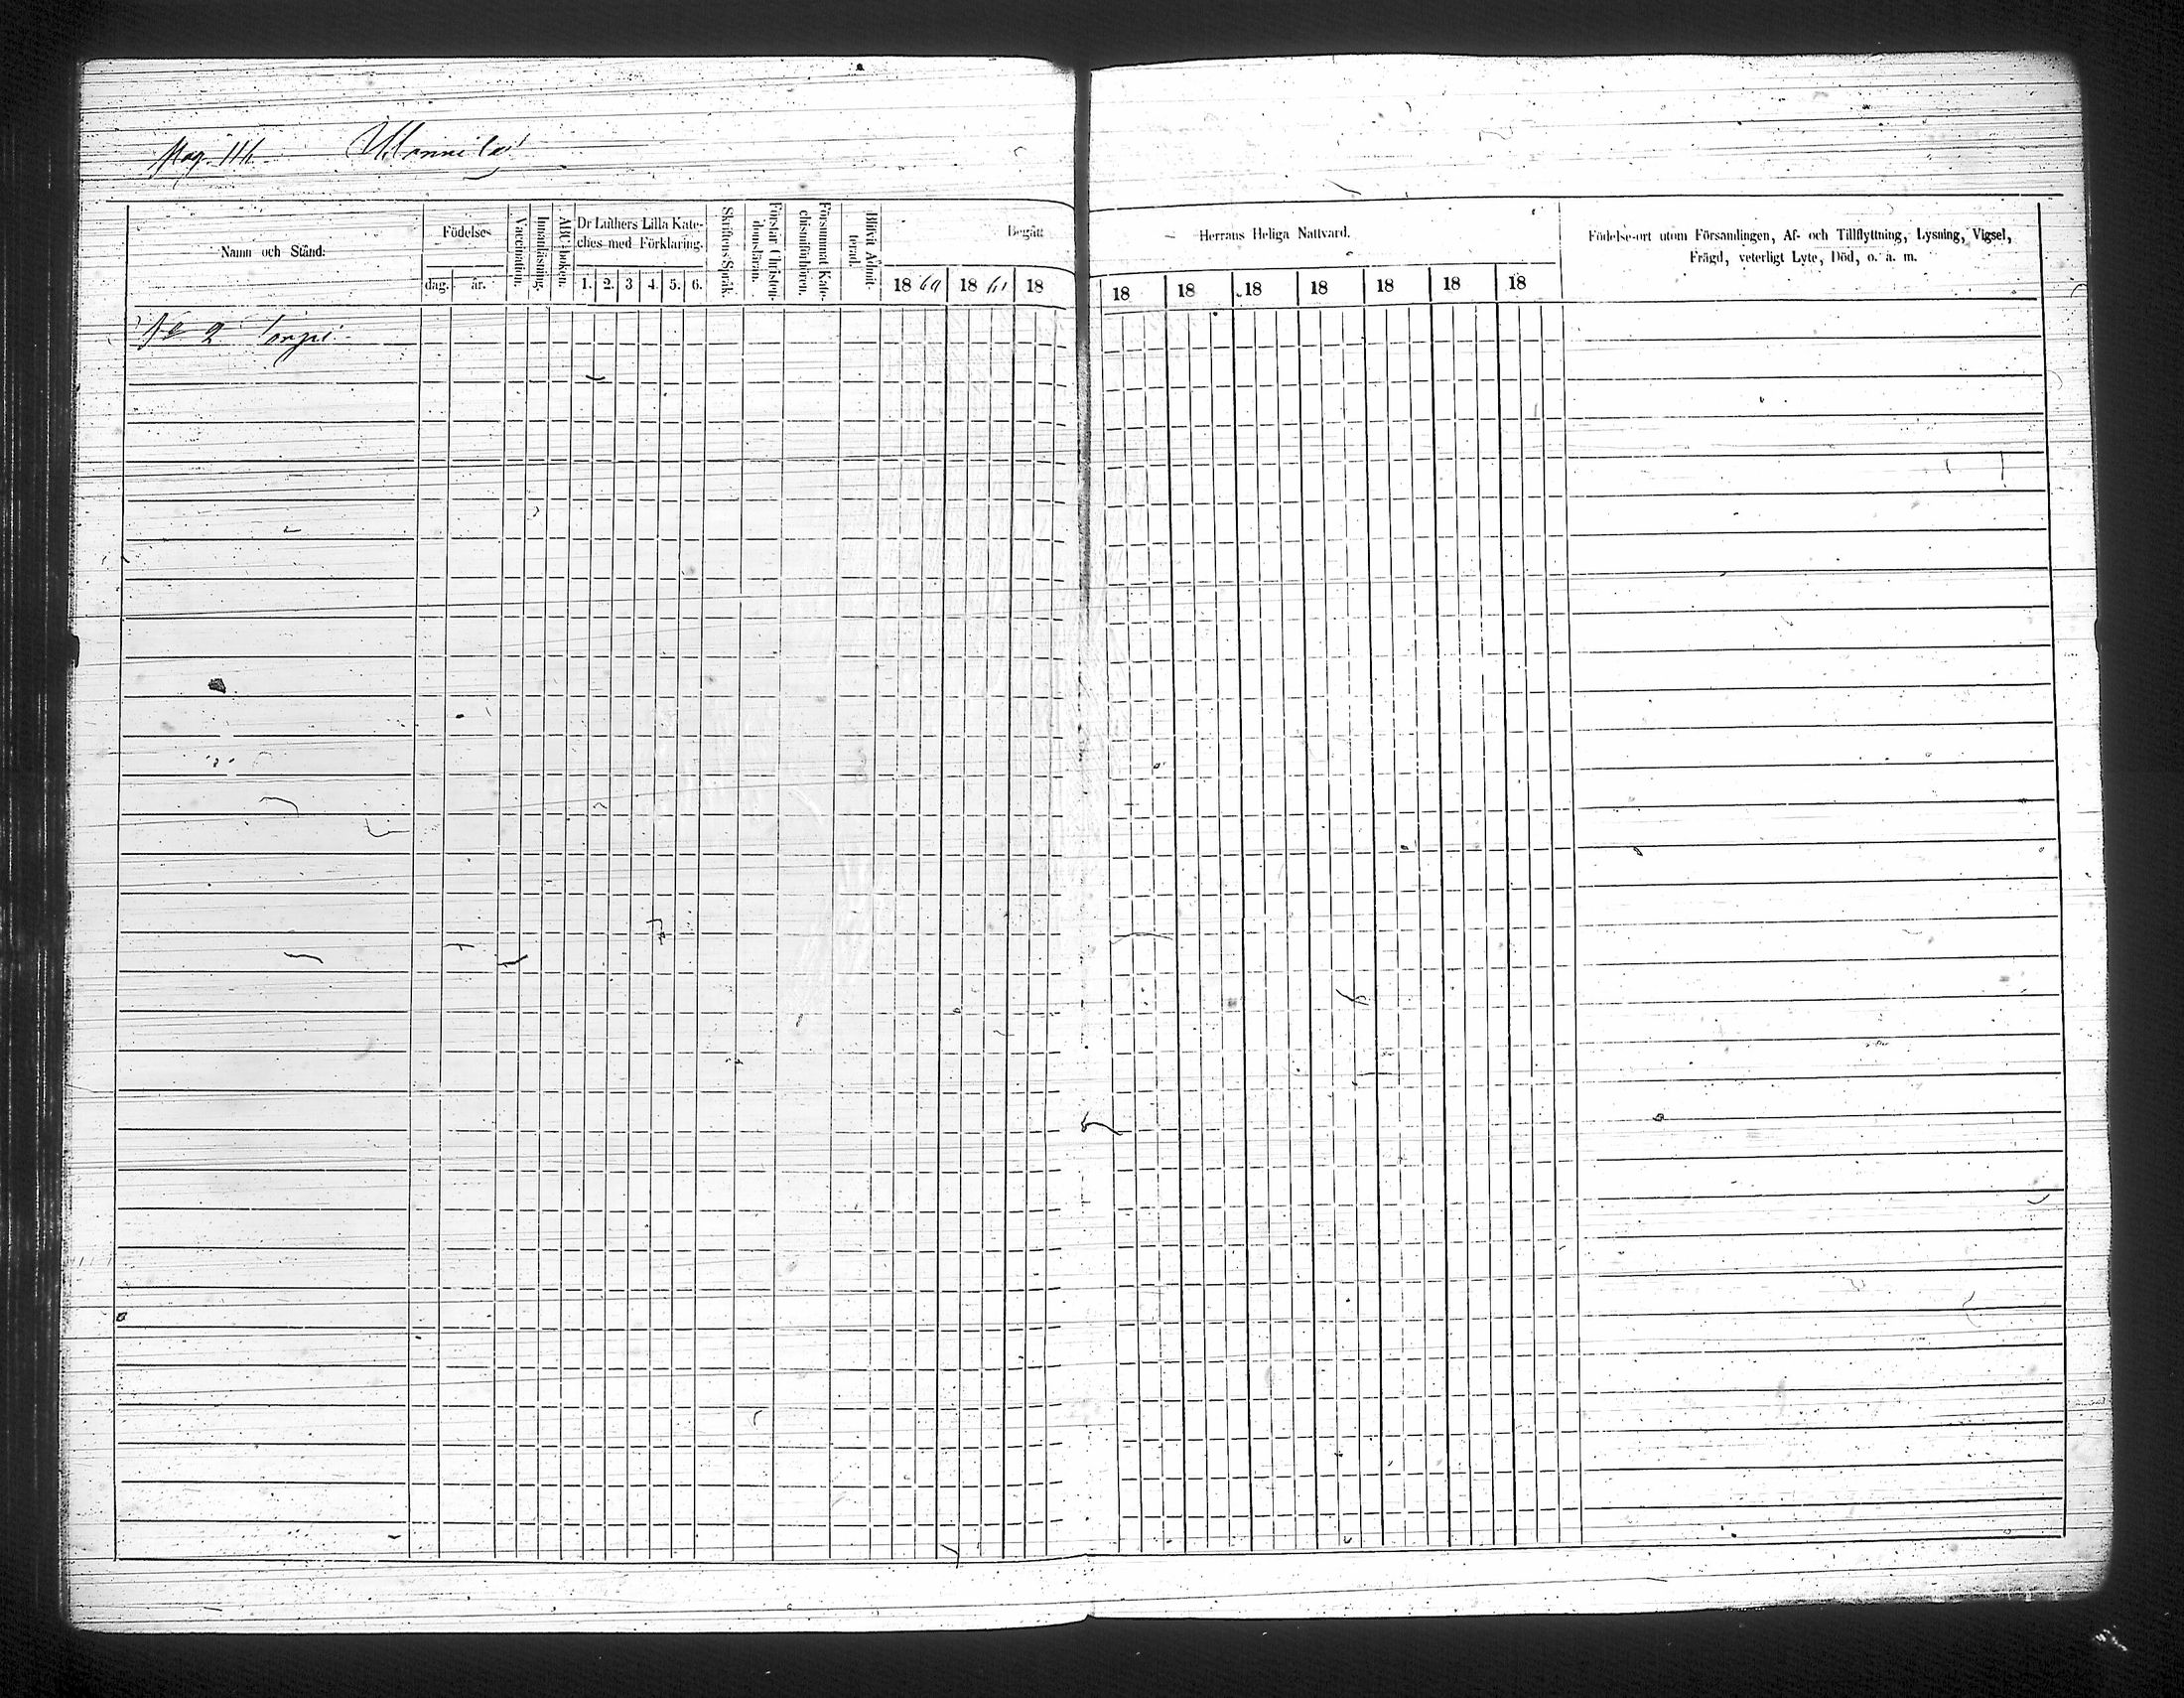 Pag. 114 Wannila
Namn och Stånd:
Födelse-
dag. år.
Vaccination.
Innanläsning.
ABC-boken.
Dr Luthers Lilla Kate-
ches med Förklaring.
1. 2. 3 4. 5. 6.
Skriftens Språk.
Förstår Christen-
domsläran.
Försummat Kate-
chismiförhören.
Blifvit Admit-
terad.
Begått
18 60 18 61 18
Herrans Heliga Nattvard.
18 18 18 18 18 18 18
Födelse-ort utom Församlingen, Af- och Tillflyttning, Lysning, Vigsel,
Frägd, veterligt Lyte, Död, o. a. m.
No 2 Torpi